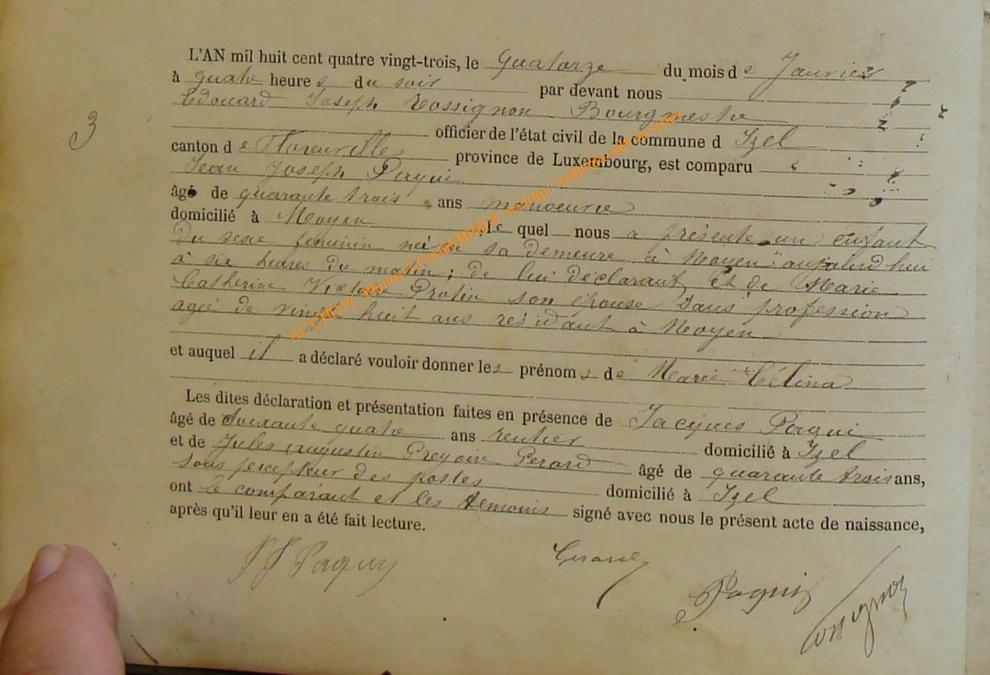 L'AN mil huit cent quatre vingt-trois, le Quatorze du mois de Janvier
à quatre heures du soir par devant nous
Edouard Joseph Rossignon Bourgmestre
3
officier de l'état civil de la commune d Izel
canton de Florenville province de Luxembourg, est comparu
Jean Joseph Paqui
âgé de quarante trois ans manoeuvre
domicilié à Moyen le quel nous a présenté un enfant
du sexe feminin né en sa demeure à Moyen aujourd'hui
à six heures du matin; de lui déclarant et de Marie
Catherine Victoire Protin son épouse sans profession
agée de vingt huit ans résidant à Moyen
et auquel il a déclaré vouloir donner les prénoms de Marie Célina
Les dites déclaration et présentation faites en présence de Jacques Paqui
âgé de Soixante quatre ans rentier domicilié à Izel
et de Jules Augustin Grégoire âgé de quarante trois ans,
sous percepteur des postes domicilié à Izel
ont le comparant et les temoins signé avec nous le présent acte de naissance,
après qu'il leur en a été fait lecture.
JJ Paquy
Paqui Rossignon